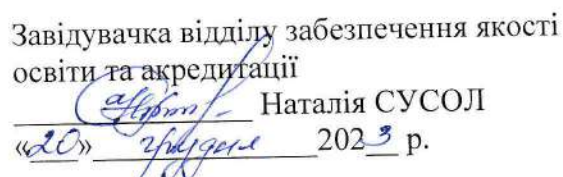 Завідувачка відділу забезпечення якості
освіти та акредитації
Наталія СУСОЛ
«20» грудня 2023 р.